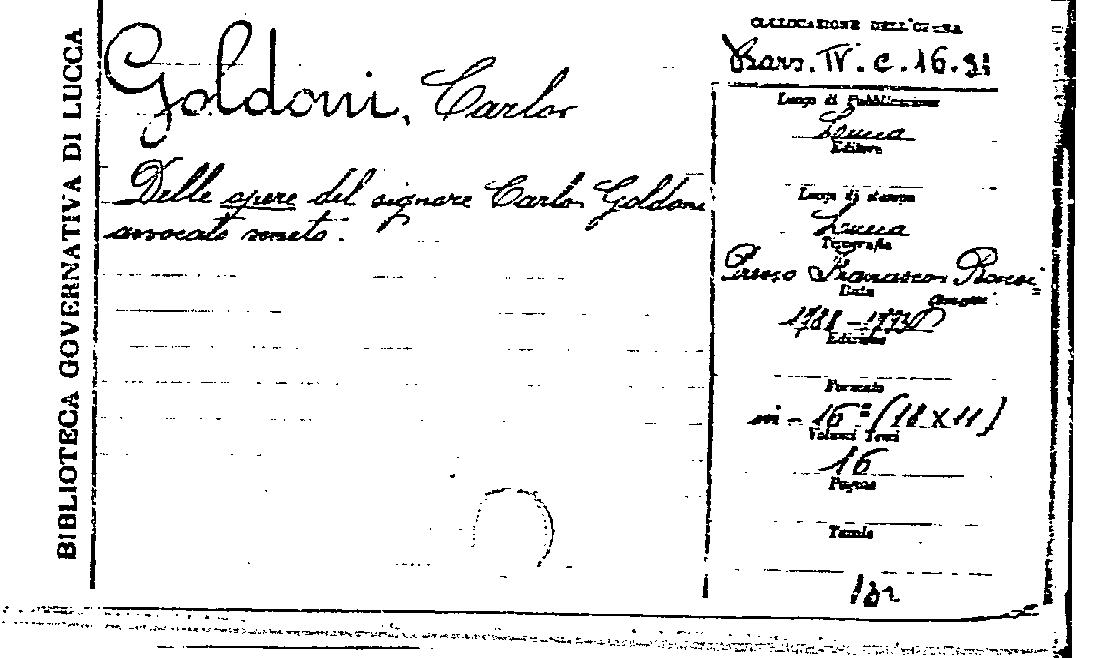 BIBLIOTECA GOVERNATIVA DI LUCCA
Goldoni, Carlo
Delle opere del signore Carlo Goldoni
avvocato veneto.
COLLOCAZIONE DELL'OPERA
IV. c. 16.
Luogo di Pubblicazione
Lucca
Editore
Luogo di stampa
Lucca
Tipografia
Presso Francesco
Data
1788 -
Edizione
Formato
in - 16° (18 X 11)
Volumi Tomi
16
Pagine
Tavole